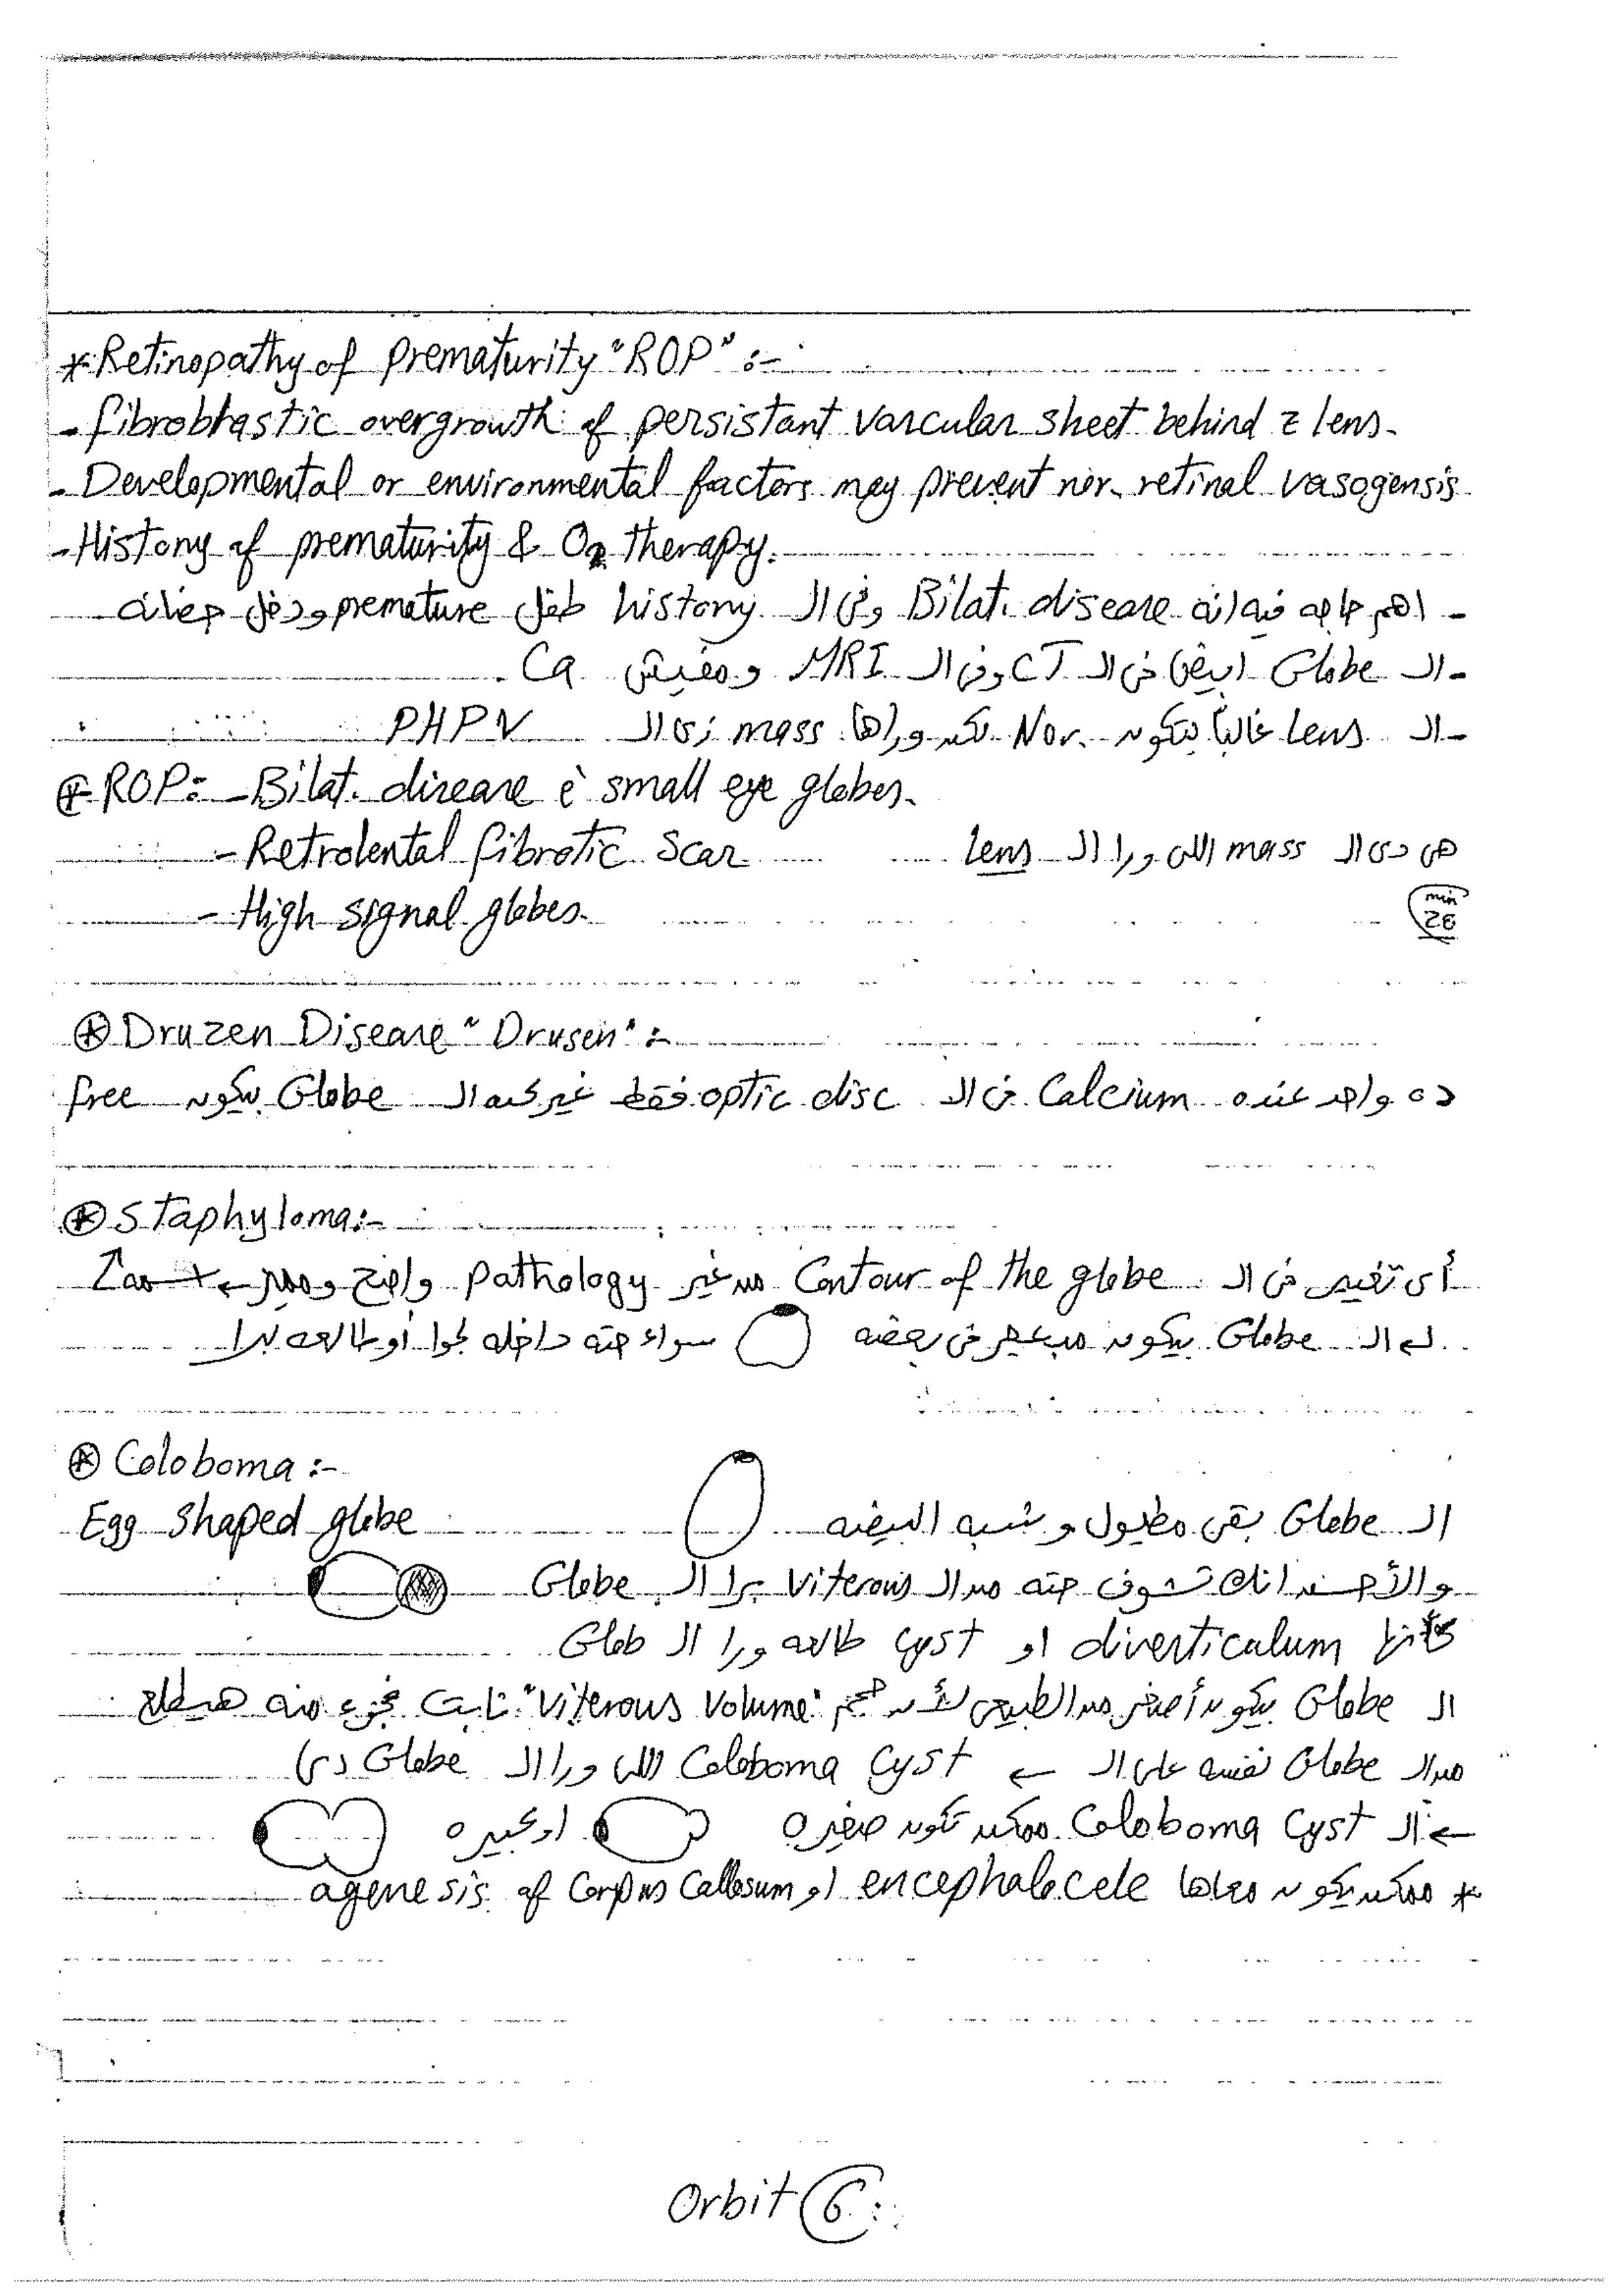 * Retinopathy of prematurity "ROP" :-
- fibroblastic overgrowth of persistant vascular sheet behind z lens.
- Developmental or environmental factors may prevent nor. retinal vasogensis
- History of prematurity & O2 therapy.
- اهم حاجه فيه انه Bilat. disease وفى ال history طفل premature ودخل حضانه
- ال Globe ابيض فى ال CT وفى ال MRI ومفيش Ca.
- ال Lens غالباً بتكون Nor. لكن وراها mass زى ال PHPV
* ROP:- - Bilat. disease è small eye globes.
- Retrolental fibrotic scar هى دى ال mass اللى ورا ال lens
- High signal globes.
min
28
* Druzen Disease "Drusen" :-
ده واحد عنده Calcium فى ال optic disc فقط غير كده ال Globe بيكون free
* Staphyloma:-
أى تغيير فى ال Contour of the globe من غير pathology واضح ومميز ←
ال Globe بيكون مبعجر فى بعضه سواء حته داخله لجوا أو طالعه لبرا
* Coloboma :-
Egg shaped globe ال Globe بقى مطيول و شبه البيضه
والأحسن انك تشوف حته من ال Viterous برا ال Globe
كأنها diverticulum او cyst طالعه ورا ال Glob
ال Globe بيكون أصغر من الطبيعى لأن حجم "Viterous Volume" ثابت فجزء منه هيطلع
من ال Globe نفسه على ال ← Coloboma Cyst اللى ورا ال Globe دى
← ال Coloboma Cyst ممكن تكون صغيره او كبيره
* ممكن يكون معاها encephalocele او agenesis of Corpus Callosum
Orbit 6